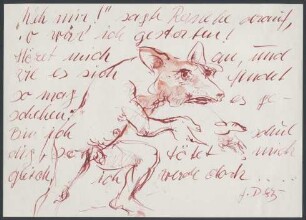 "Weh mir!" sagte Reineke darauf,
o wär' ich gestorben!
Höret mich an, und
wie es sich findet
so mag es ge-
schehen:
Bin ich schul
dig, so tötet mich
gleich, ich werde doch ....